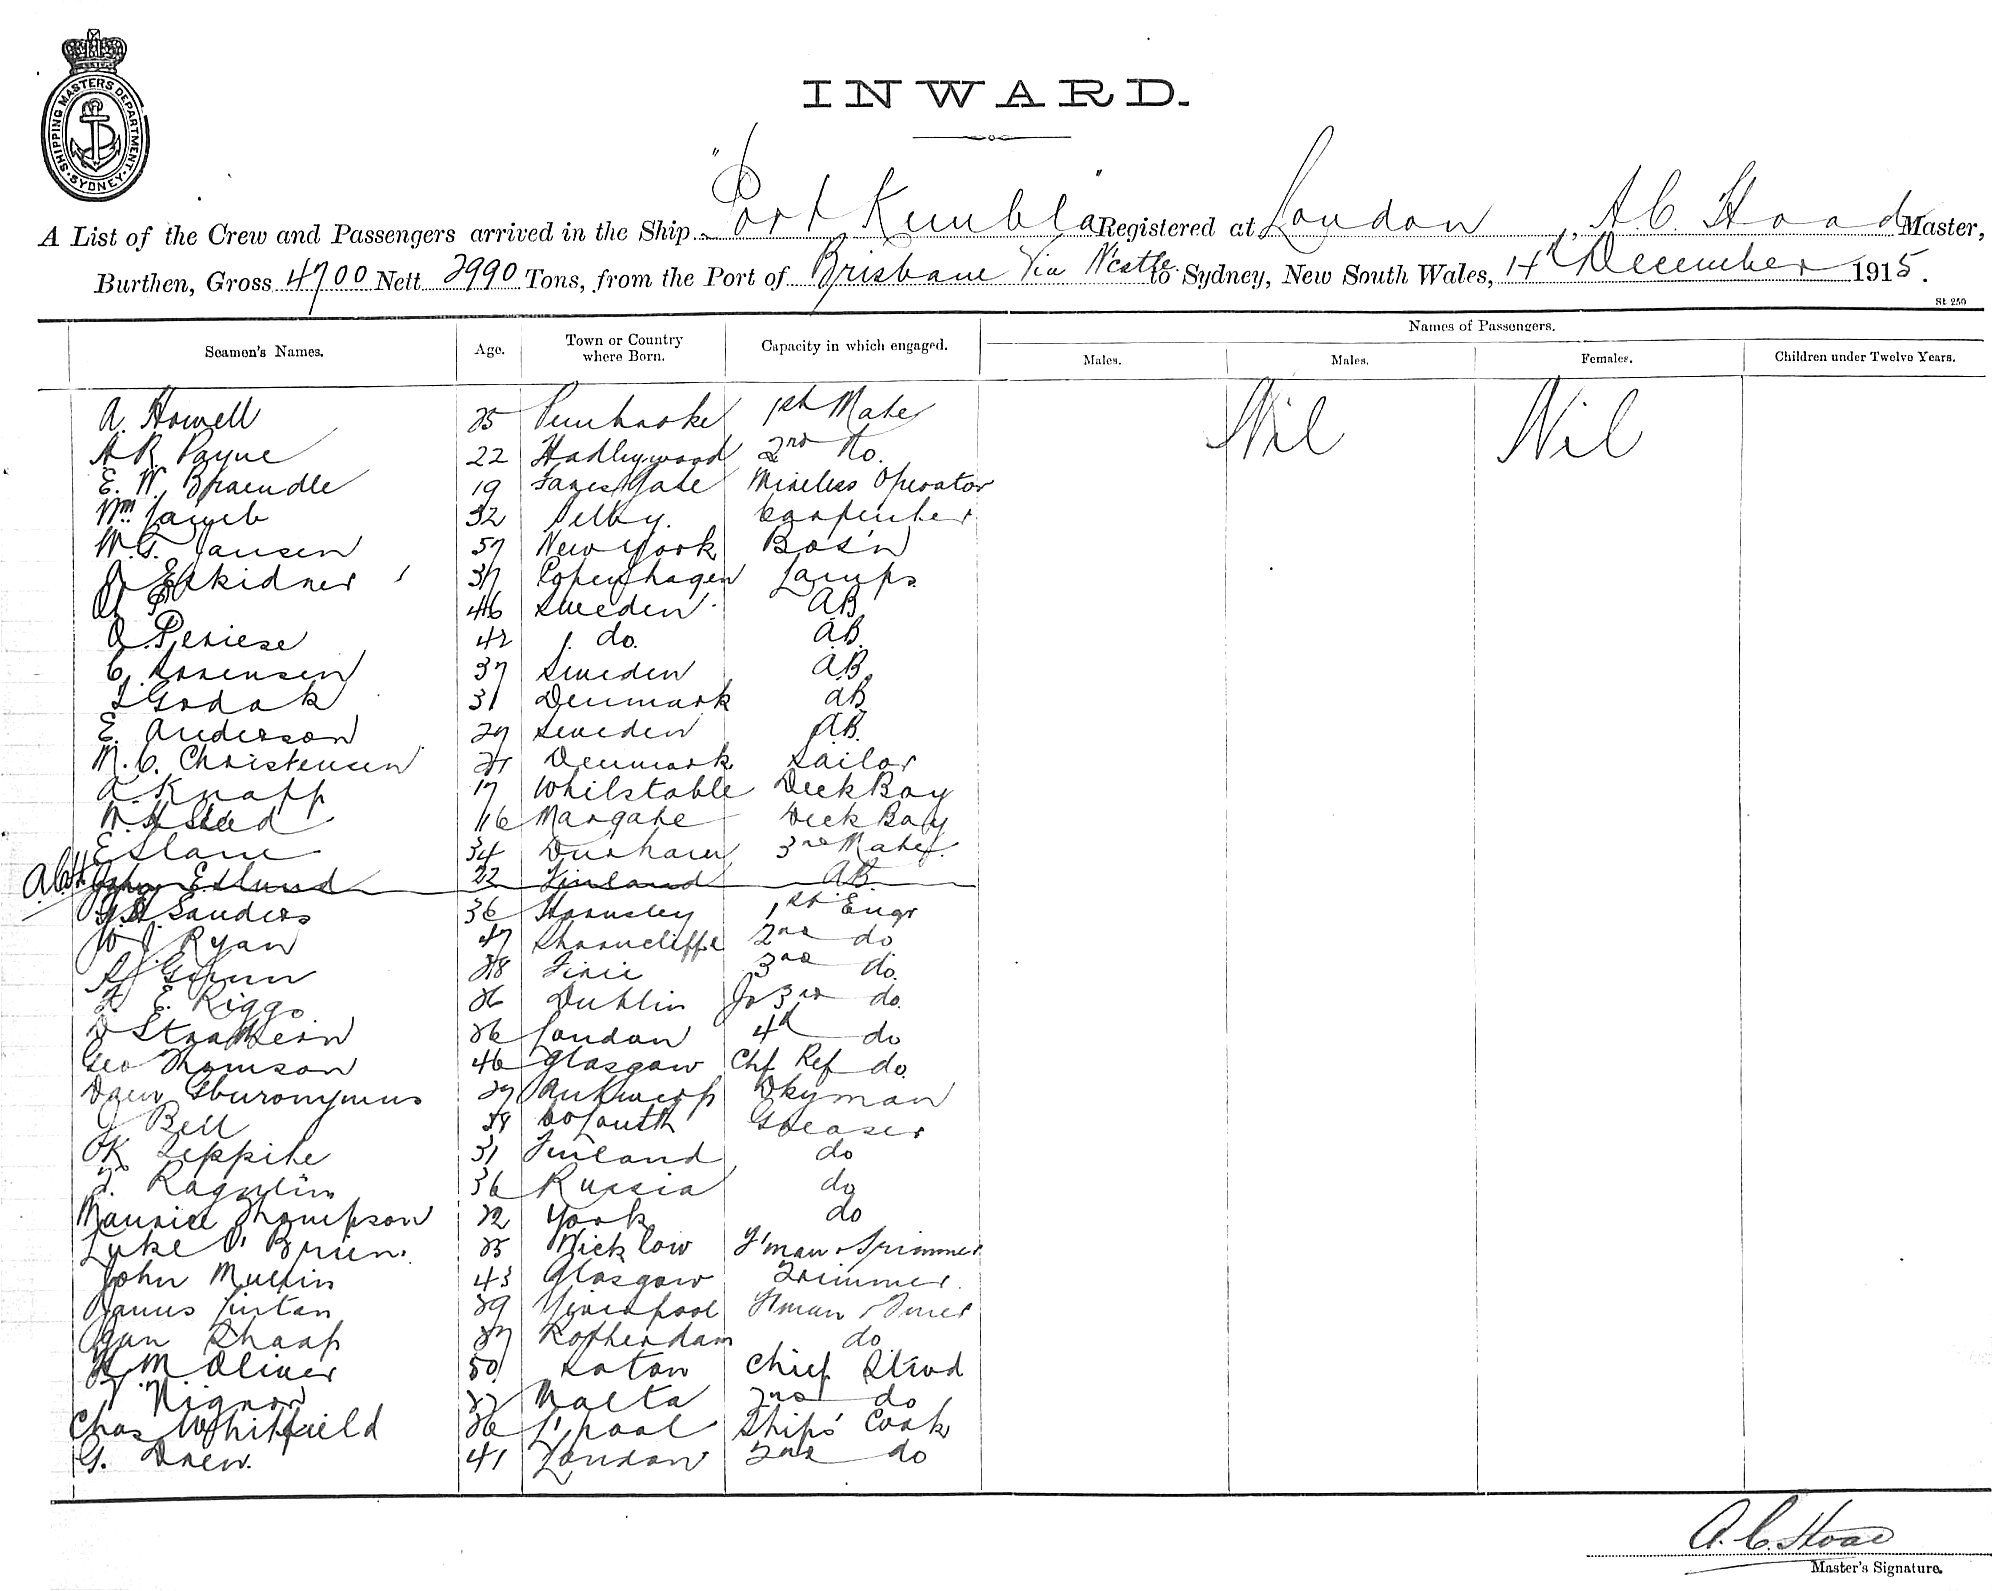 SHIPPING MASTERS DEPARTMENT SYDNEY
INWARD.
A List of the Crew and Passengers arrived in the Ship "Port Kembla" Registered at London, A C Hoad Master,
Burthen, Gross 4700 Nett 2990 Tons, from the Port of Brisbane via N'castle to Sydney, New South Wales, 14th December 1915.
St 250
Names of Passengers.
Seamen's Names. Age. Town or Country where Born. Capacity in which engaged. Males. Males. Females. Children under Twelve Years.
A. Howell 25 Pembroke 1st Mate Nil Nil
A R Payne 22 Hadleywood 2nd do.
E. W. Braendle 19 Wireless Operator
Wm 32 Selby. Carpenter
W. G. Jansen 57 New York Bos'n
Eskidner 37 Copenhagen Lamps
46 Sweden AB
42 do. AB
C. Sorensen 37 Sweden AB
31 Denmark AB
E. Anderson 27 Sweden AB.
M. C. Christensen 21 Denmark Sailor
A. Knapp 17 Whilstable Deck Boy
W. H. 16 Margate Deck Boy
E Slane 34 Durham 3rd Mate
A.C.H. John Eslund 22 Finland AB
Sanders 36 Hornsley 1st Engr
W J. Ryan 47 Shorncliffe 2nd do
28 3rd do.
E. Riggs 26 Dublin Jr 3rd do.
D Strathern 26 London 4th do
Geo Thomson 46 Glasgow Chf Ref do.
27 Antwerp Dkyman
J Bell 38 Co Louth Greaser
31 Finland do
F. Ragulin 36 Russia do
Maurice Thompson 22 York do
Luke O'Brien. 25 Wicklow F'man & Trimmer
John Mullin 43 Glasgow Trimmer.
James 29 Liverpool F'man & T'mer
Jan Shaap 27 Rotherdam do
H M Oliver 50 Chief Stewd
Malta 2nd do
Chas Whitfield 26 L'pool Ships' Cook
G. Drew. 41 London 2nd do
A. C. Hoad
Master's Signature.